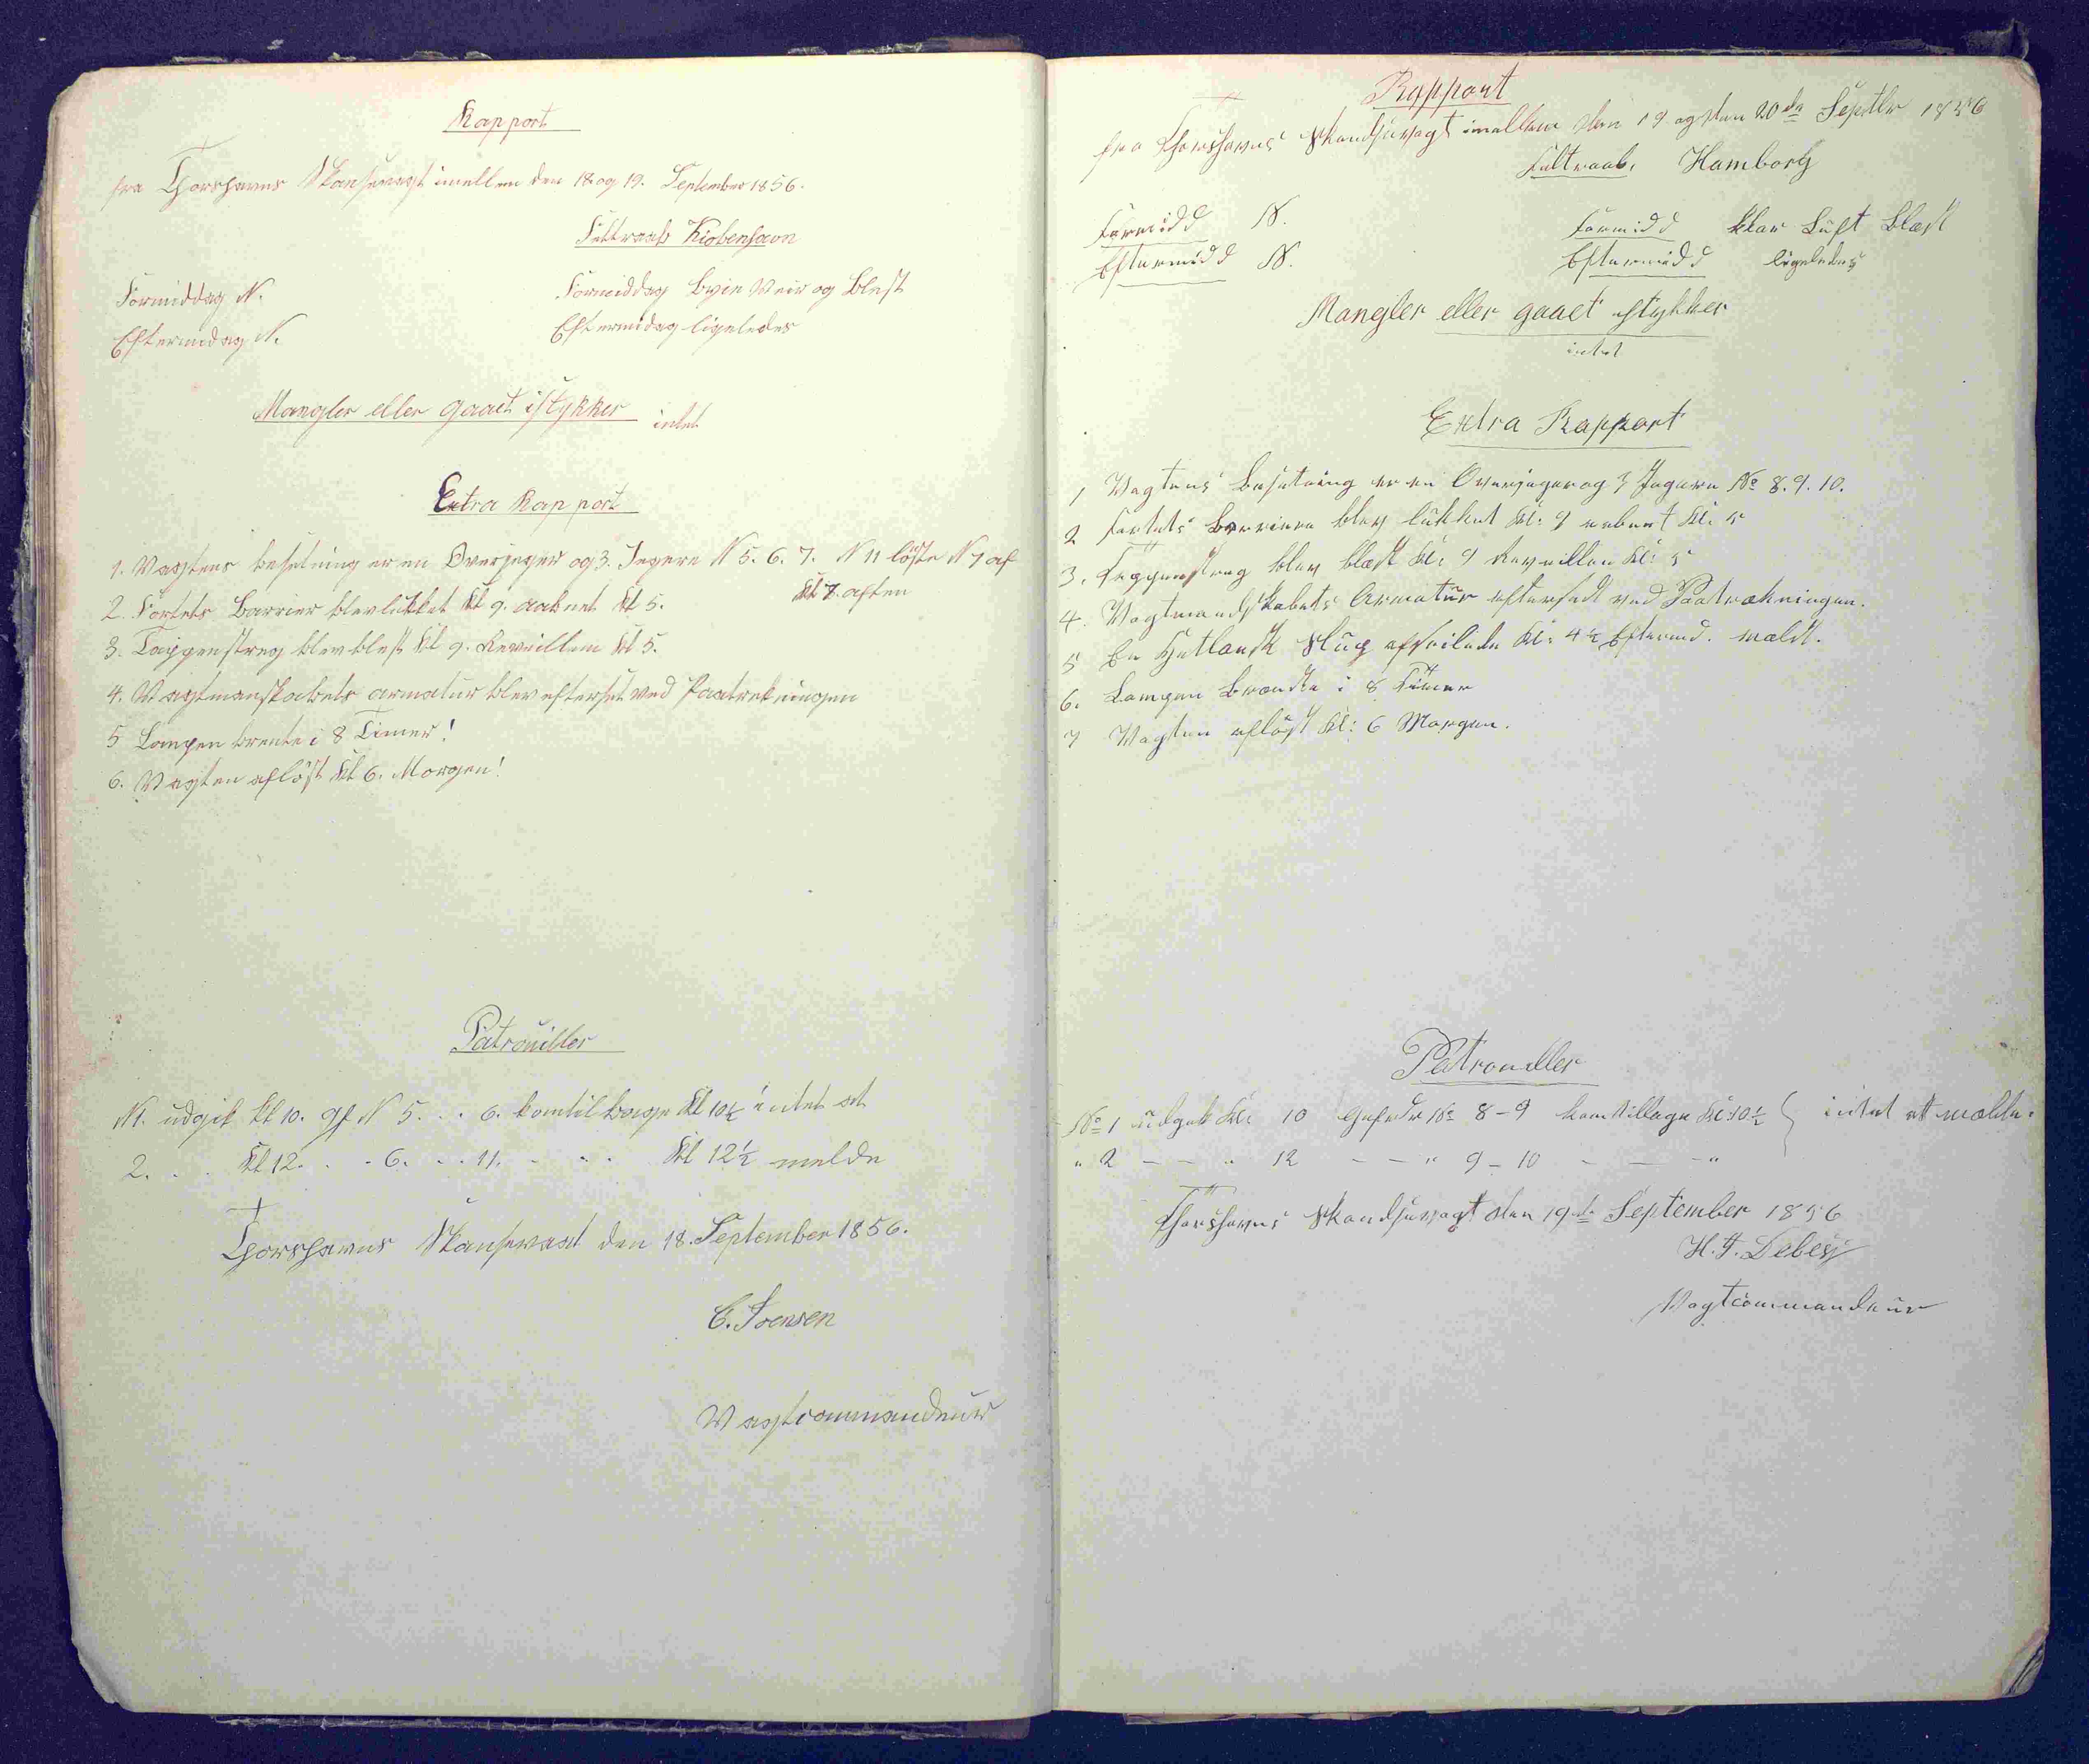 Rapport
fra Thorshavns Skansevagt imellem den 18. og 19. September 1856.
Feltraab Kiøbenhavn
Formiddag N.
Formiddag Byie Veir og Blest
Eftermidag N.
Eftermidag ligeledes
Mangler eller gaaet istykker intet
Extra Rapport
1. Vagtens besetning er en Overjeger og 3. Jegere N 5. 6. 7. N 11 løste N 7 af
Kl 7. aften
2. Fortets Barrier blev lukket Kl 9. aabnet Kl 5.
3. Tappenstreg blev blest Kl 9. Reveillem Kl 5.
4. Vagtmanskabets armatur blev efterset ved Paatrekningen
5 Lampen brente i 8 Timer!
6. Vagten afløst Kl 6. Morgen!
Patrouiller
N1. udgik Kl 10. gf N 5. . . 6. kom tilbage Kl 10½ intet at
2. . . Kl 12. . . 6. . . 11. . . . Kl 12½ melde
Thorshavns Skansevagt den 18. September 1856.
C. Joensen
Vagtcommandeur
Rapport
fra Thorshavns Skandsevagt imellem den 19 og den 20de Septbr 1856
Feltraab, Hamborg
Formidd N.
Formidd klar Luft Blæst
Eftermidd N.
Eftermidd ligeledes
Mangler eller gaaet istykker
intet
Extra Rapport
1, Vagtens Besætning er en Overjeger og 3 Jegere No 8. 9. 10.
2 Fortets Barriere blev lukket Kl: 9 aabnet Kl: 5
3. Tappenstreg blev blæst Kl: 9 Reveillen Kl: 5
4. Vagtmandskabets Armatur efterseet ved Paatrækningen.
5 En Hetlandsk Slup afseilede Kl: 4½ Efterm. mældt.
6. Lampen Brændte i 8 Timer
7 Vagten afløst Kl: 6 Morgen.
Patrouiller
No 1 udgik Kl: 10 Gefr No 8 - 9 kom tilbage Kl: 10½ } intet at mælde.
" 2 — — " 12 — — " 9 - 10 — — — "
Thorshavns Skandsevagt den 19de September 1856
H. J. Debes
Vagtcommandeur